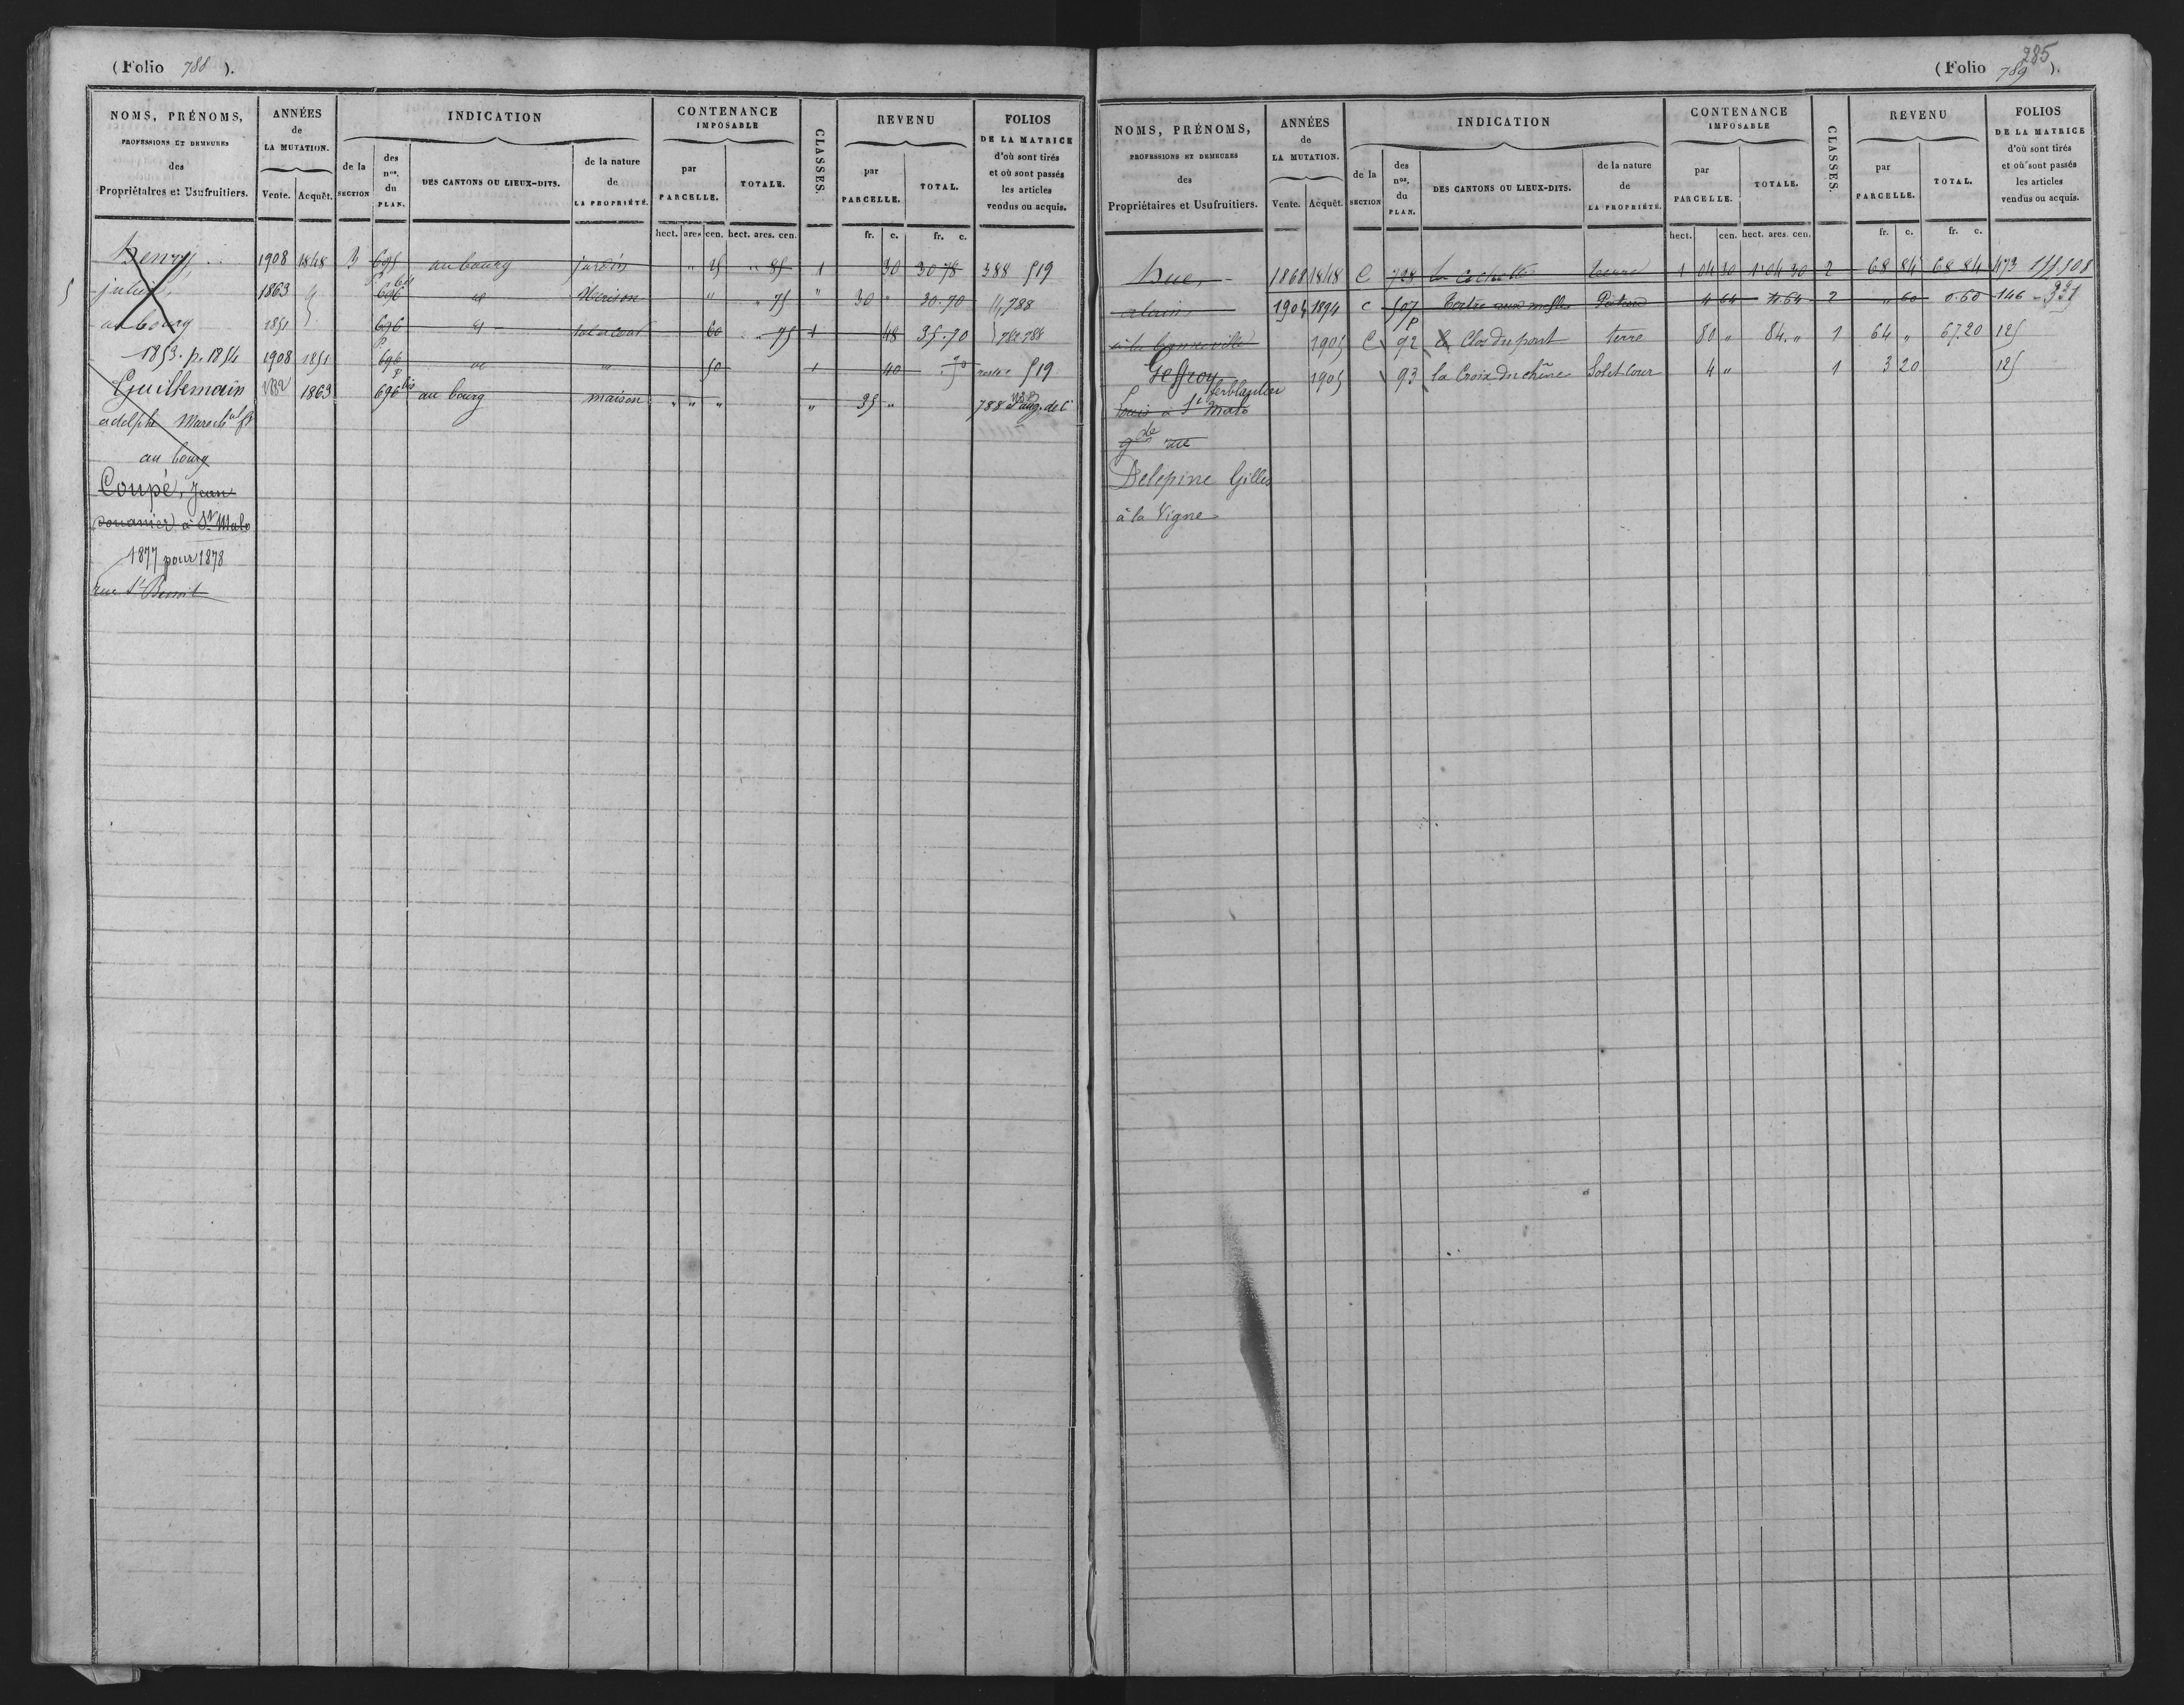 (Folio 788 ).
NOMS, PRÉNOMS,
PROFESSIONS ET DEMEURES
des
Propriétaires et Usufruitiers.
ANNÉES
de
LA MUTATION.
Vente. Acquêt.
INDICATION
de la
SECTION
des
nos.
du
PLAN.
DES CANTONS OU LIEUX-DITS.
de la nature
de
LA PROPRIÉTÉ.
CONTENANCE
IMPOSABLE
par
PARCELLE.
TOTALE.
hect. ares cen. hect. ares. cen.
CLASSES.
REVENU
par
PARCELLE.
TOTAL.
fr. c. fr. c.
FOLIOS
DE LA MATRICE
d'où sont tirés
et où sont passés
les articles
vendus ou acquis.
Henry,
julien,
au bourg
1853. p. 1854
Guillemain
adolphe Marech
au bourg
Coupé, Jean
douanier à St Malo
1877 pour 1878
rue St Benoit
1908 1848 B 695 au bourg jardin " 85 1 30 30 78 388 519
1863 696 bis Maison " " 75 " 30 " 30.70 788
1851 696 p sol et cour 60 " 75 1 48 35.70 788
1908 1851 696 p " " 50 1 40 519
1882 1863 696 bis au bourg maison " " " " 35 " 788 aug. de C
285
(Folio 789 ).
NOMS, PRÉNOMS,
PROFESSIONS ET DEMEURES
des
Propriétaires et Usufruitiers.
ANNÉES
de
LA MUTATION.
Vente. Acquêt.
INDICATION
de la
SECTION
des
nos.
du
PLAN.
DES CANTONS OU LIEUX-DITS.
de la nature
de
LA PROPRIÉTÉ.
CONTENANCE
IMPOSABLE
par
PARCELLE.
TOTALE.
hect. cen. hect. ares. cen.
CLASSES.
REVENU
par
PARCELLE.
TOTAL.
fr. c. fr. c.
FOLIOS
DE LA MATRICE
d'où sont tirés
et où sont passés
les articles
vendus ou acquis.
Hue,
alexis
Geffroy
ferblantier
Louis à St Malo
gde rue
Delepine Gilles
à la Vigne
1868 1848 C 728 la Cochette terre 1 04 30 1.04 30 2 68 84 68 84 473
1904 1894 C 507 p Tertre aux Pature 4 64 4.64 2 " 60 0.60 146 - 335
1905 C 92 le Clos du pont terre 80 " 84. " 1 64 " 67.20 125
1905 93 la Croix du chêne Sol et Cour 4 " 1 3 20 125